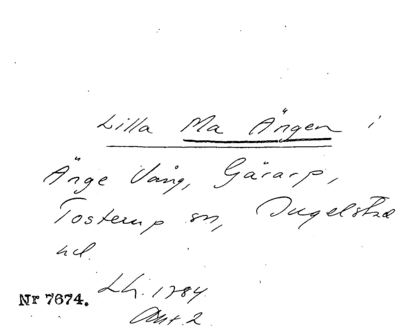 Lilla Ma Ängen i
Änge Vång, Gärarp,
Tosterup sn, Ingelsta
hd.
Lh. 1784
Akt 2
Nr 7674.